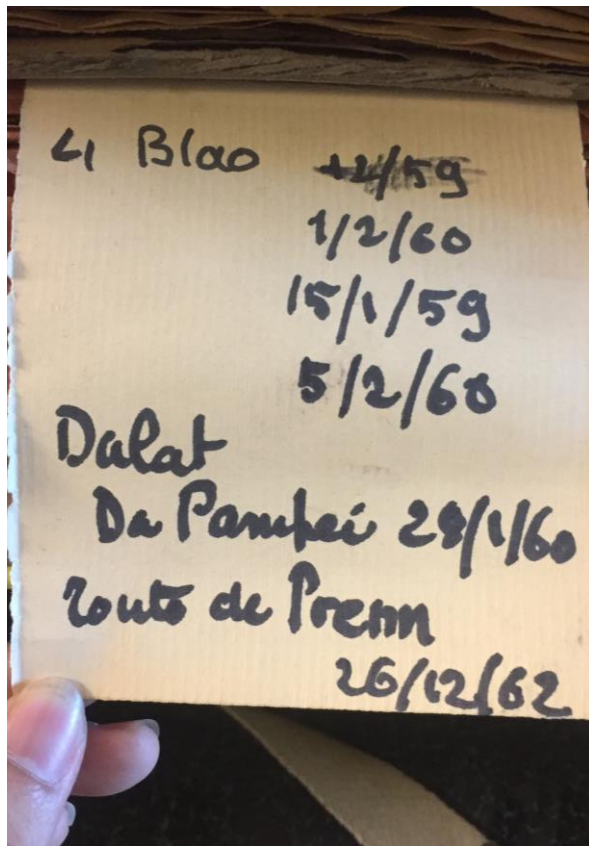 4 Blao
1/2/60
15/1/59
5/2/60
Dalat
Da Pampei 28/1/60
Route de Prenn
26/12/62